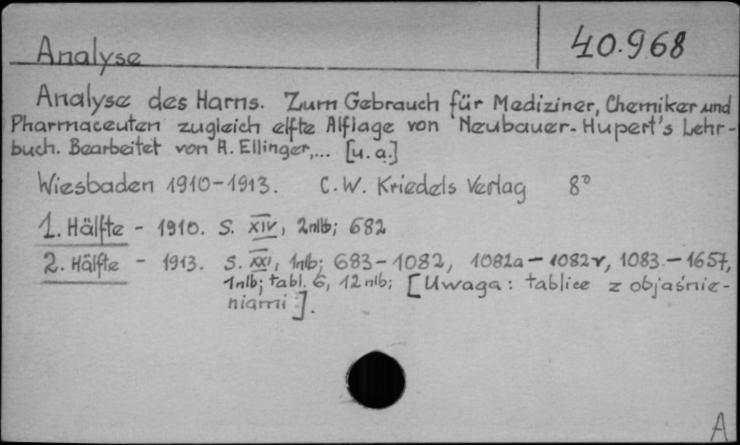 Analyse 40.968
Analyse des Harns. Zum Gebrauch für Mediziner, Chemiker und
Pharmaceuten zugleich elfte Alflage von Neubauer-Hupert's Lehr-
buch. Bearbeitet von A. Ellinger,... [u. a.]
Wiesbaden 1910-1913. C.W. Kriedels Verlag 8°
1. Hälfte - 1910. S. XIV, 2nlb; 682
2. Hälfte - 1913. S. XXI, 1nlb; 683-1082, 1082a-1082v, 1083-1657,
1nlb; tabl. 6, 12 nlb; [Uwaga: tablice z objaśnie-
niami].
A